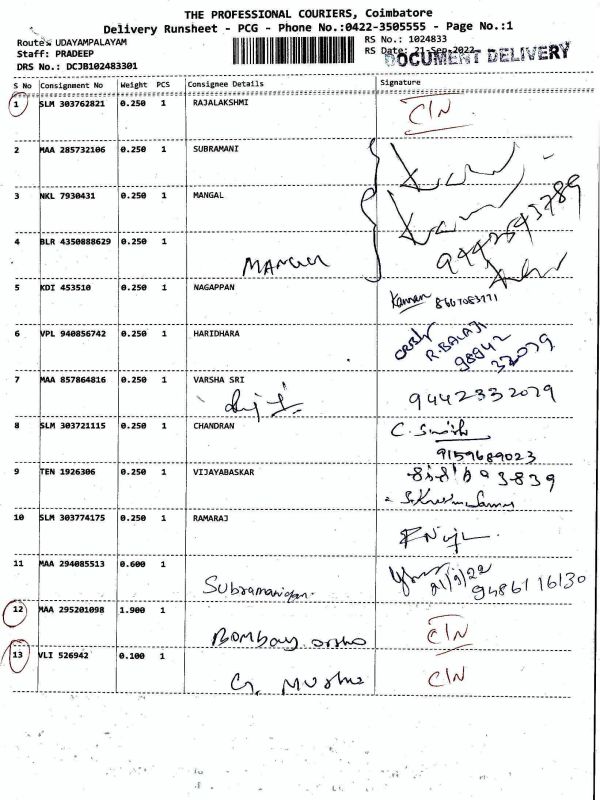 THE PROFESSIONAL COURIERS, Coimbatore
Delivery Runsheet - PCG - Phone No.:0422-3505555 - Page No.:1
Route: UDAYAMPALAYAM
RS No.: 1024833
Staff: PRADEEP
RS Date: 21-Sep-2022
DOCUMENT DELIVERY
DRS No.: DCJB102483301
S No Consignment No Weight PCS Consignee Details Signature
1 SLM 303762821 0.250 1 RAJALAKSHMI
C/N
2 MAA 285732106 0.250 1 SUBRAMANI
3 NKL 7930431 0.250 1 MANGAL
4 BLR 4350888629 0.250 1
5 KDI 453510 0.250 1 NAGAPPAN
Kannan
6 VPL 940856742 0.250 1 HARIDHARA
R. BALAJI
98942
32079
7 MAA 857864816 0.250 1 VARSHA SRI
9442332079
8 SLM 303721115 0.250 1 CHANDRAN
9159689023
9 TEN 1926306 0.250 1 VIJAYABASKAR
10 SLM 303774175 0.250 1 RAMARAJ
11 MAA 294085513 0.600 1
Subramaniyan
21/9/22
9486116130
12 MAA 295201098 1.900 1
BOMBAY
C/N
13 VLI 526942 0.100 1
G.
C/N